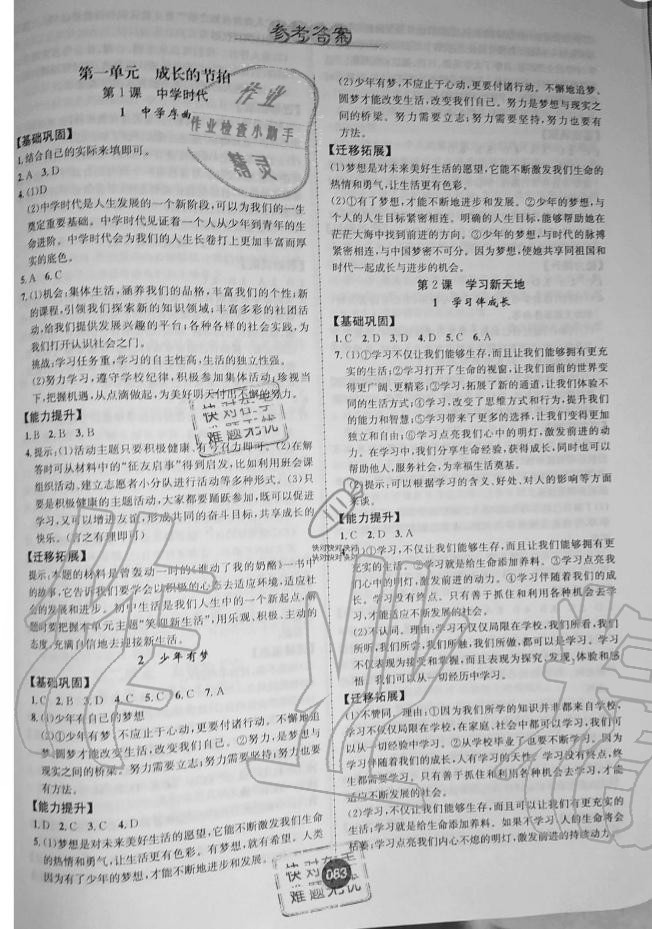 参考答案
第一单元 成长的节拍
第1课 中学时代
1 中学序曲
【基础巩固】
1.结合自己的实际来填即可。
2.A 3.D
4.(1)D
(2)中学时代是人生发展的一个新阶段,可以为我们的一生
奠定重要基础。中学时代见证着一个人从少年到青年的生
命进阶。中学时代会为我们的人生长卷打上更加丰富而厚
实的底色。
5.A 6.C
7.(1)机会:集体生活,涵养我们的品格,丰富我们的个性;新
的课程,引领我们探索新的知识领域;丰富多彩的社团活
动,给我们提供发展兴趣的平台;各种各样的社会实践,为
我们打开认识社会之门。
挑战:学习任务重,学习的自主性高,生活的独立性强。
(2)努力学习,遵守学校纪律,积极参加集体活动;珍视当
下,把握机遇,从点滴做起,为美好明天付出不懈的努力。
【能力提升】
1.B 2.B 3.B
4.提示:(1)活动主题只要积极健康、有号召力即可。(2)在解
答时可从材料中的“征友启事”得到启发,比如利用班会课
组织活动、建立志愿者小分队进行活动等多种形式。(3)只
要是积极健康的主题活动,大家都要踊跃参加,既可以促进
学习,又可以增进友谊,形成共同的奋斗目标,共享成长的
快乐。(言之有理即可)
【迁移拓展】
提示:本题的材料是曾轰动一时的《谁动了我的奶酪》一书中
的故事,它告诉我们要学会以积极的心态去适应环境,适应社
会的发展和进步。初中生活是我们人生中的一个新起点,解
题时要把握本单元主题“笑迎新生活”,用乐观、积极、主动的
态度,充满自信地去迎接新生活。
2 少年有梦
【基础巩固】
1.C 2.B 3.D 4.D 5.C 6.C 7.A
8.(1)少年有自己的梦想
(2)①少年有梦,不应止于心动,更要付诸行动。不懈地追
梦、圆梦才能改变生活,改变我们自己。②努力,是梦想与
现实之间的桥梁。努力需要立志;努力需要坚持;努力也要
有方法。
【能力提升】
1.D 2.C 3.D 4.D
5.(1)梦想是对未来美好生活的愿望,它能不断激发我们生命
的热情和勇气,让生活更有色彩。有梦想,就有希望。人类
因为有了少年的梦想,才能不断地进步和发展。
(2)少年有梦,不应止于心动,更要付诸行动。不懈地追梦、
圆梦才能改变生活,改变我们自己。努力是梦想与现实之
间的桥梁。努力需要立志;努力需要坚持;努力也要有方法。
【迁移拓展】
(1)梦想是对未来美好生活的愿望,它能不断激发我们生命的
热情和勇气,让生活更有色彩。
(2)①有了梦想,才能不断地进步和发展。②少年的梦想,与
个人的人生目标紧密相连。明确的人生目标,能够帮助她在
茫茫大海中找到前进的方向。③少年的梦想,与时代的脉搏
紧密相连,与中国梦密不可分。因为梦想,使她共享同祖国和
时代一起成长与进步的机会。
第2课 学习新天地
1 学习伴成长
【基础巩固】
1.C 2.D 3.D 4.D 5.C 6.A
7.(1)①学习不仅让我们能够生存,而且让我们能够拥有更充
实的生活;②学习打开了生命的视窗,让我们面前的世界变
得更广阔、更精彩;③学习,拓展了新的通道,让我们体验不
同的生活方式;④学习,改变了思维方式和行为,提升我们
的能力和智慧;⑤学习带来了更多的选择,让我们变得更加
独立和自由;⑥学习点亮我们心中的明灯,激发前进的动
力。在学习中,我们分享生命经验,获得成长,同时也可以
帮助他人,服务社会,为幸福生活奠基。
(2)提示:可以根据学习的含义、好处、对人的影响等方面
来谈。
【能力提升】
1.C 2.D 3.A 4.C
5.(1)①学习,不仅让我们能够生存,而且让我们能够有更充
实的生活。②学习就是给生命添加养料。③学习点亮
我们心中的明灯,激发前进的动力。④学习伴随着我们的成
长。学习没有终点。只有善于抓住和利用各种机会去学
习,才能适应不断发展的社会。
(2)不认同。理由:①学习不仅仅局限在学校,我们所看,我们
所听,我们所尝,我们所触,我们所做,都可以是学习。②学
习不仅表现为接受和掌握,而且表现为探究、发现、体验和感
悟。我们可以从一切经历中学习。
【迁移拓展】
(1)不赞同。理由:①因为我们所学的知识并非都来自学校,
学习不仅仅局限在学校,在家庭、社会中都可以学习,我们可
以从一切经验中学习。②从学校毕业了也要不断学习。因为
学习伴随着我们的成长,人有学习的天性。学习没有终点,终
生都需要学习。只有善于抓住和利用各种机会学习,才能适应
不断发展的社会。
(2)学习,不仅让我们能够生存,而且让我们能够有更充实的
生活;学习就是给生命添加养料。如果不学习,人的生命将会
枯萎;学习点亮我们内心不熄的明灯,激发前进的持续动力。
083
作业
作业检查小助手
精灵
快对在手
难题无忧
快对快对快对
快对快对快对
快对在手
难题无忧